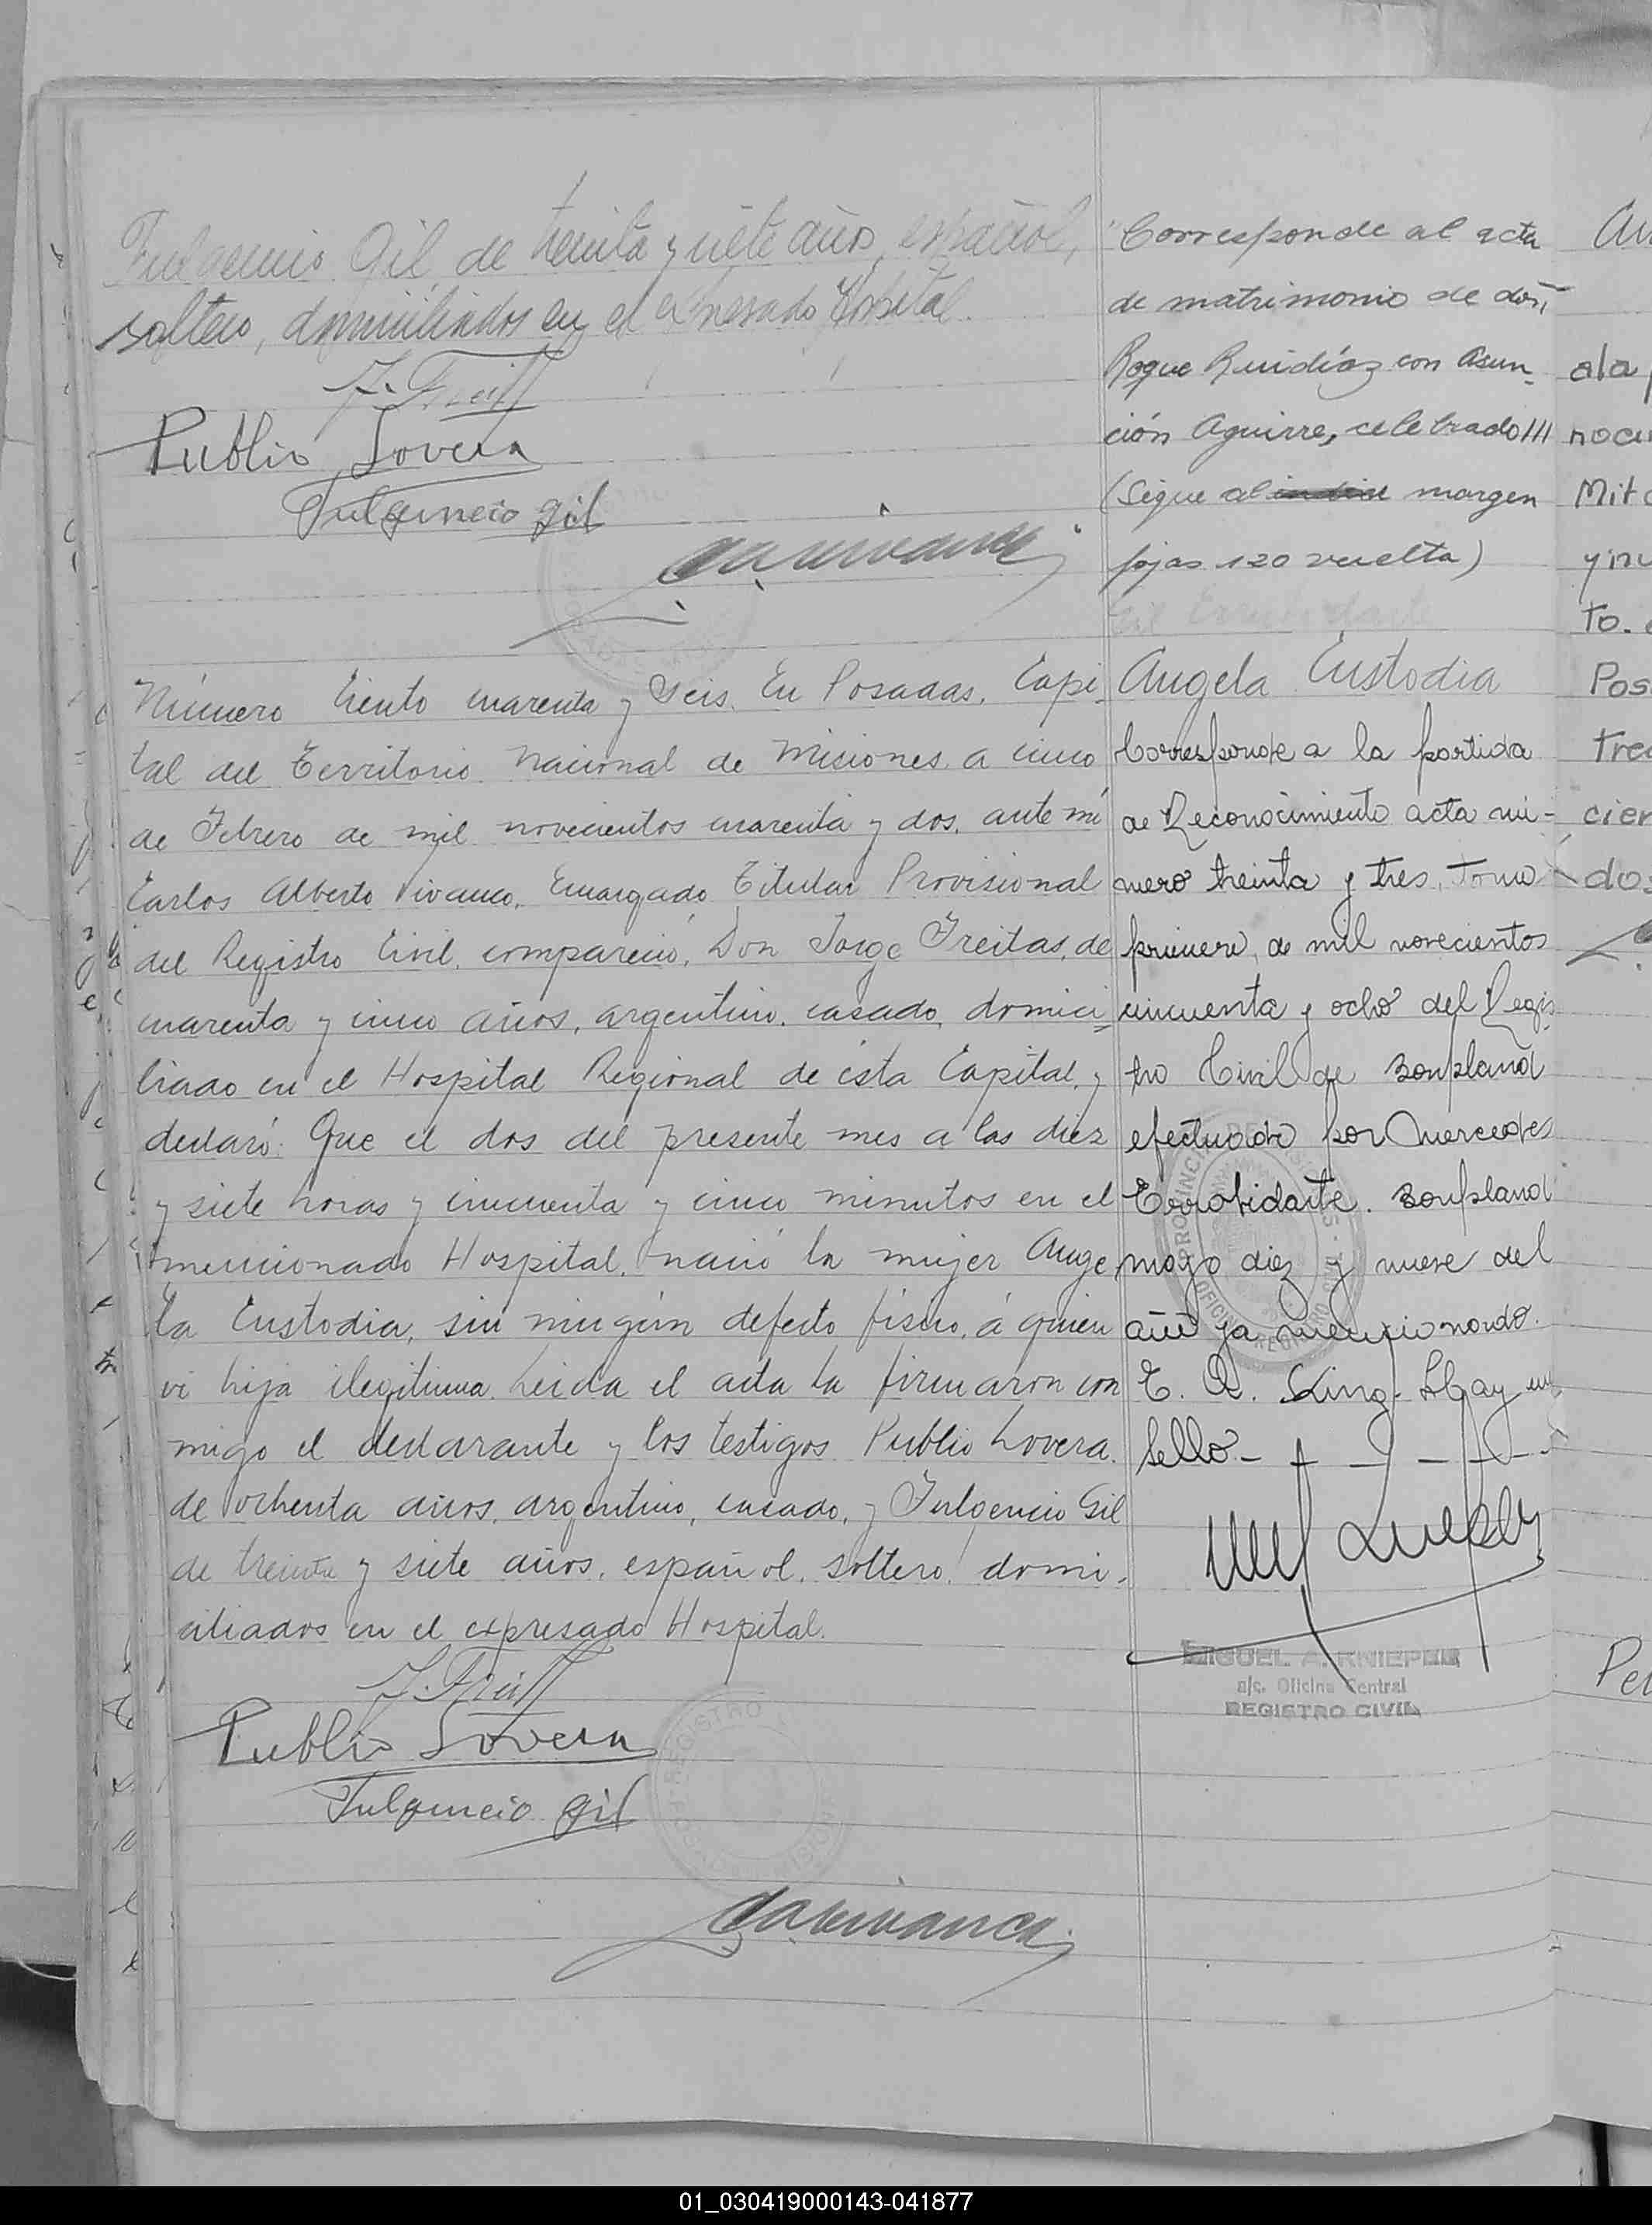 Fulgencio Gil, de treinta y siete años, español,
soltero, domiciliados en el expresado Hospital.
J. Freitas
Publio Lovera
Fulgencio gil
Número Ciento cuarenta y Seis. En Posadas, Capi-
tal del Territorio Nacional de Misiones a cinco
de Febrero de mil novecientos cuarenta y dos, ante mi
Carlos Alberto Vivanco, Encargado Titular Provisional
del Registro Civil, compareció, Don Jorge Freitas, de
cuarenta y cinco años, argentino, casado, domici-
liado en el Hospital Regional de esta Capital, y
declaró: Que el dos del presente mes a las diez
y siete horas y cincuenta y cinco minutos en el
mencionado Hospital, nació la mujer Ange
la Custodia, sin ningún defecto físico, á quien
vi hija ilegitima. Leida el acta la firmaron con
migo el declarante y los testigos Publio Lovera.
de ochenta años, argentino, casado, y Fulgencio Gil
de treinta y siete años, español, soltero, domi-
ciliados en el expresado Hospital.
J. Freitas
Publio Lovera
Fulgencio gil
Corresponde al acta
de matrimonio de don
Roque Ruidíaz con Asun-
ción Aguirre, celebrado///
(Sigue al margen
fojas 120 vuelta)
Angela Custodia
Corresponde a la partida
de Reconocimiento acta nú-
mero treinta y tres, Tomo
primero, de mil novecientos
cincuenta y ocho del Regis-
tro Civil de Bonpland
efectuado por Mercedes
Errobidarte. Bonpland
mayo diez y nueve del
año ya mencionado.
E. A. King. Hay un
sello.-
MIGUEL A. KNIEPER
a/c. Oficina Central
REGISTRO CIVIL
ala
Mit
to.
Pos
cien
dos
01_030419000143-041877